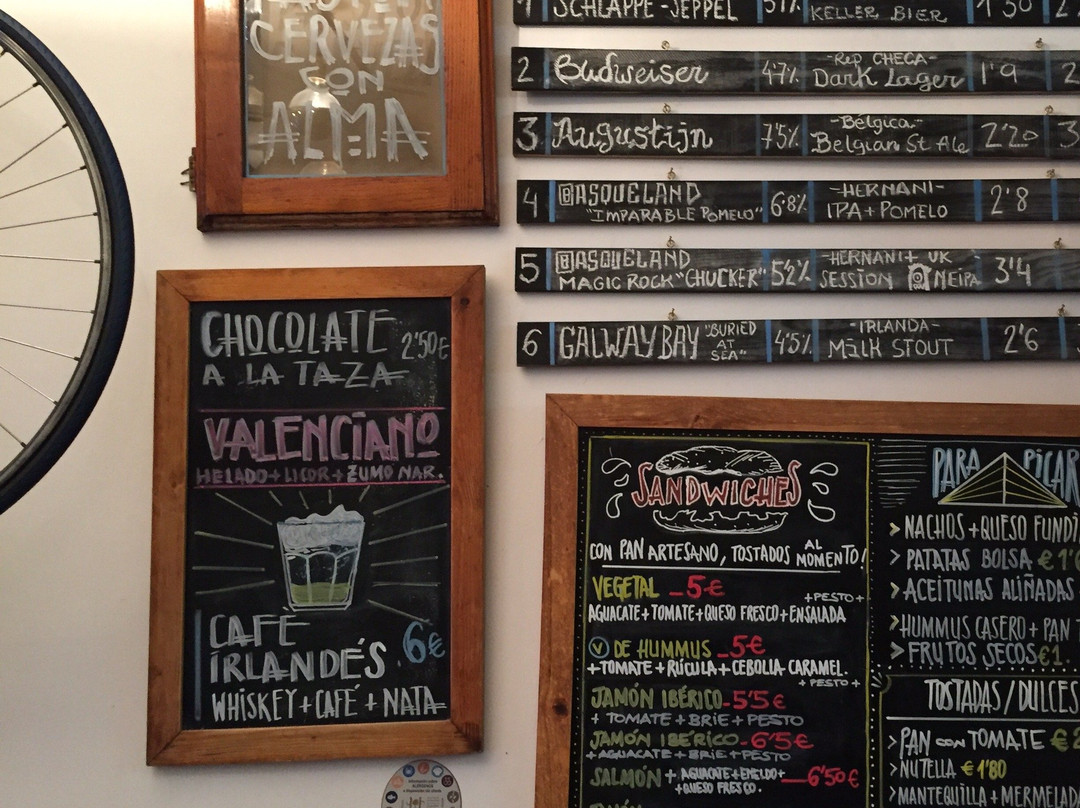 CERVEZAS
CON
ALMA
CHOCOLATE 2'50€
A LA TAZA
VALENCIANO
HELADO+LICOR+ZUMO NAR.
CAFÉ
IRLANDÉS 6€
WHISKEY+CAFÉ+NATA
1 SCHLAPPE-SEPPEL 5'1% KELLER BIER 1'50
2 Budweiser 4'7% -Rep CHECA- Dark Lager 1'9
3 Augustijn 7'5% -Bélgica- Belgian St Ale 2'20
4 BASQUELAND "IMPARABLE POMELO" 6'8% -HERNANI- IPA+POMELO 2'8
5 BASQUELAND MAGIC ROCK "CHUCKER" 5'2% HERNANI+UK SESSION NEIPA 3'4
6 GALWAY BAY "BURIED AT SEA" 4'5% -IRLANDA- MILK STOUT 2'6
SANDWICHES
CON PAN ARTESANO, TOSTADOS AL MOMENTO!
VEGETAL _5€ +PESTO+
AGUACATE+TOMATE+QUESO FRESCO+ENSALADA
V DE HUMMUS _5€
+TOMATE+RÚCULA+CEBOLLA CARAMEL.
+PESTO+
JAMÓN IBÉRICO-5'5€
+TOMATE+BRIE+PESTO
JAMÓN IBÉRICO-6'5€
+AGUACATE+BRIE+PESTO
SALMÓN +AGUACATE+ENELDO+ _6'50€
+QUESO FRESCO.
PARA PICAR
> NACHOS+QUESO
> PATATAS BOLSA €1'
> ACEITUNAS ALIÑADAS
> HUMMUS CASERO+PAN
> FRUTOS SECOS €1.
TOSTADAS/DULCES
> PAN CON TOMATE €2
> NUTELLA €1'80
> MANTEQUILLA+